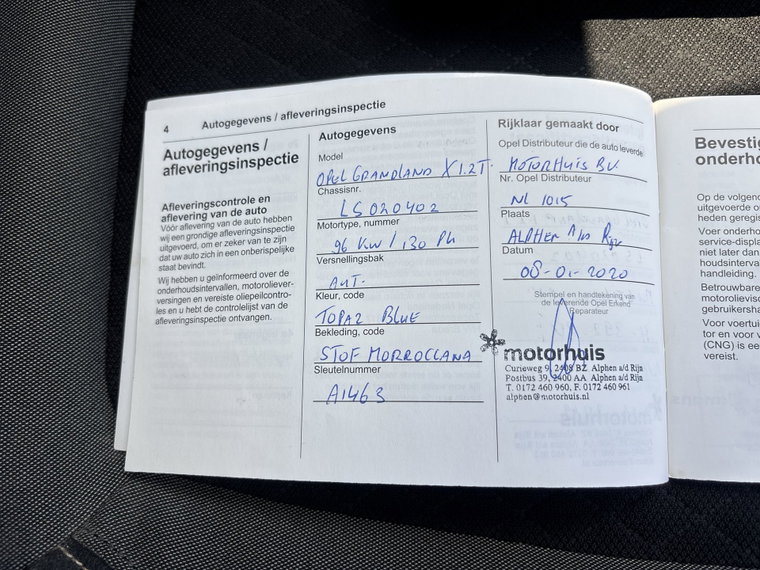 4
Autogegevens / afleveringsinspectie
Autogegevens /
afleveringsinspectie
Afleveringscontrole en
aflevering van de auto
Vóór aflevering van de auto hebben
wij een grondige afleveringsinspectie
uitgevoerd, om er zeker van te zijn
dat uw auto zich in een onberispelijke
staat bevindt.
Wij hebben u geïnformeerd over de
onderhoudsintervallen, motoroliever-
versingen en vereiste oliepeilcontro-
les en u hebt de controlelijst van de
afleveringsinspectie ontvangen.
Autogegevens
Model
OPEL GRANDLAND X 1.2T.
Chassisnr.
LS020402
Motortype, nummer
96 KW / 130 PK
Versnellingsbak
AUT.
Kleur, code
TOPAZ BLUE
Bekleding, code
STOF MORROCCANA
Sleutelnummer
A1463
Rijklaar gemaakt door
Opel Distributeur die de auto leverde
MOTORHUIS BV
Nr. Opel Distributeur
NL 1015
Plaats
ALPHEN A/D Rijn
Datum
08-01-2020
Stempel en handtekening van
de leverende Opel Erkend
Reparateur
motorhuis
Curieweg 9, 2408 BZ Alphen a/d Rijn
Postbus 39, 2400 AA Alphen a/d Rijn
T. 0172 460 960, F. 0172 460 961
alphen@motorhuis.nl
Bevestig
onderho
Op de volgend
uitgevoerde o
heden geregis
Voer onderho
service-displa
niet later dan
houdsinterva
handleiding.
Betrouwbare
motorolievis
gebruikersha
Voor voertui
tor en voor v
(CNG) is ee
vereist.